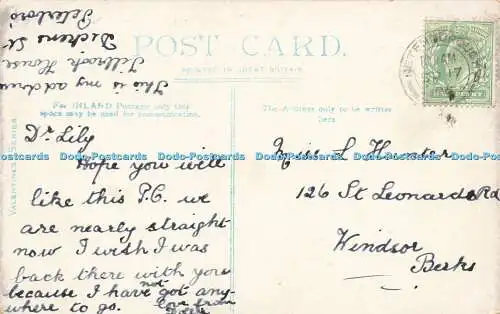 This is my address
Tillrook House
Dickens St
Peterboro'
POST CARD.
PRINTED IN GREAT BRITAIN
For INLAND Postage only this
space may be used for communication.
The Address only to be written
here
VALENTINES SERIES
Dr Lily
Hope you will
like this P.C. we
are nearly straight
now I wish I was
back there with you
because I have not got any-
where to go. love from
Miss L Hunter
126 St Leonards Rd
Windsor
Berks
Dodo-Postcards Dodo-Postcards Dodo-Postcards Dodo-Postcards Dodo-Postcards